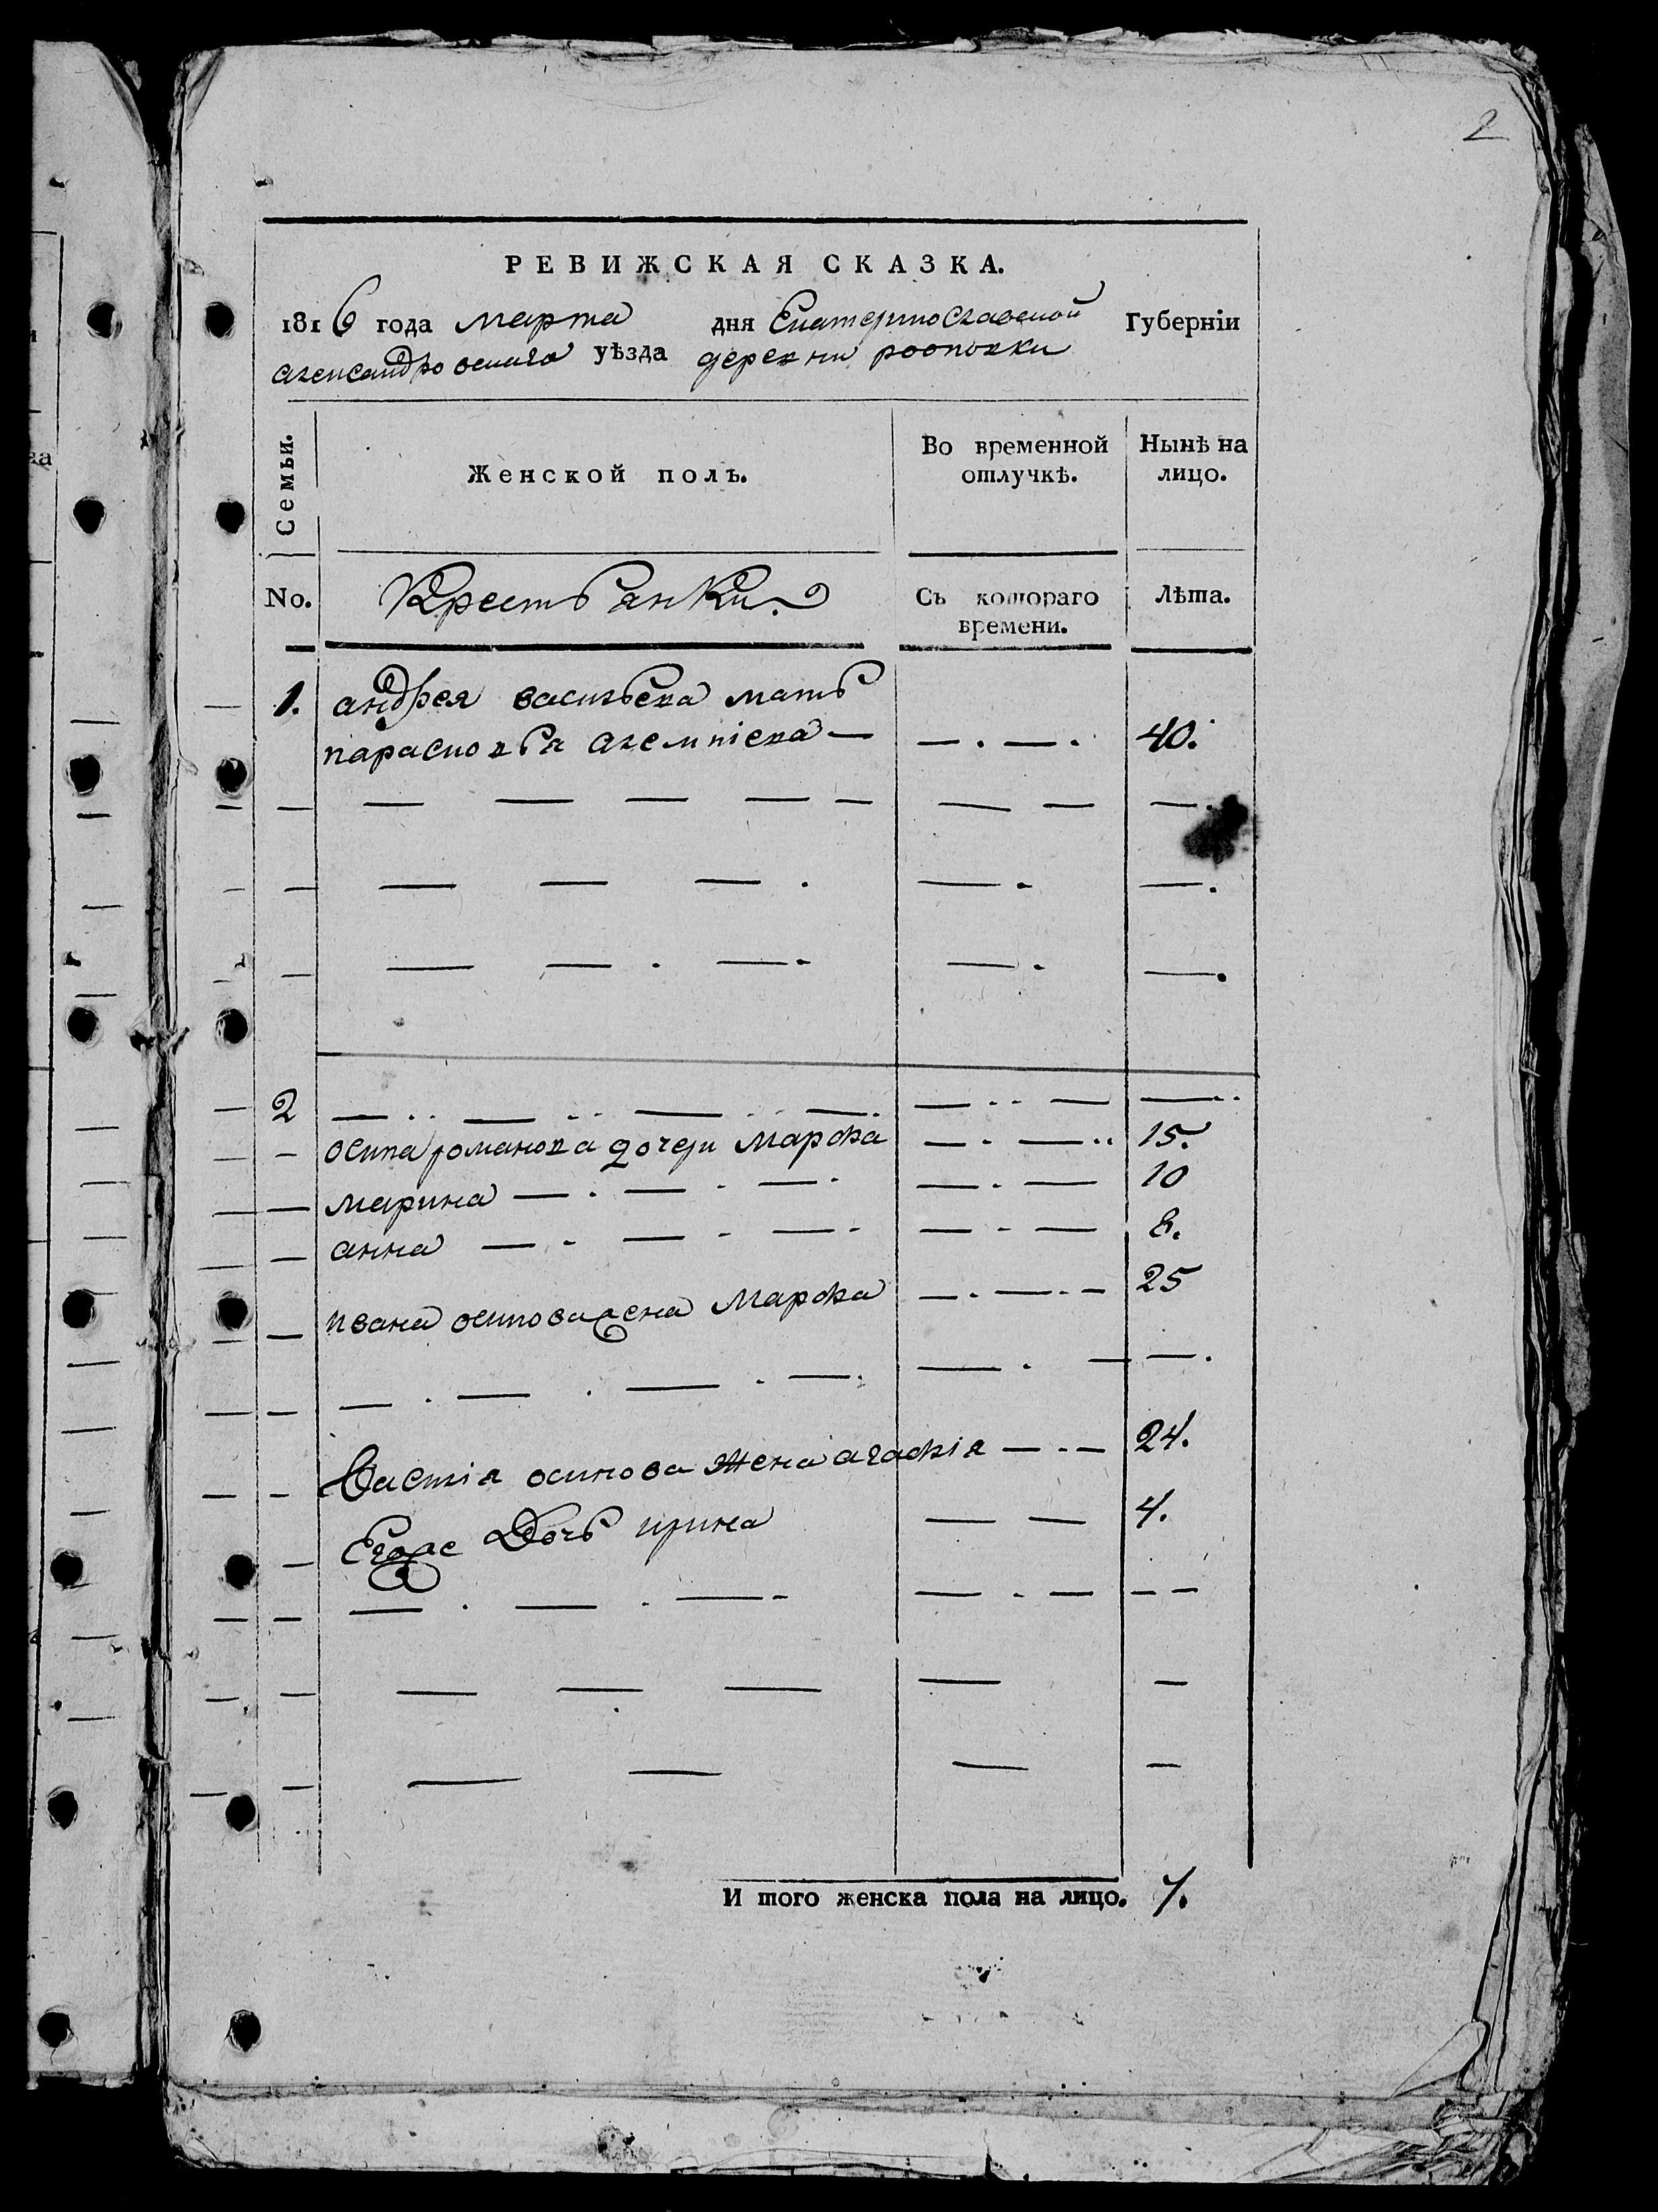 2
РЕВИЖСКАЯ СКАЗКА.
1816 года марта дня Екатеринославской Губерніи
александровскаго уѣзда деревни
Семьи.
Женской полъ.
Во временной отлучкѣ.
Нынѣ на лицо.
No.
Крестьянки.
Съ котораго времени.
Лѣта.
1. андрея васильева мать
парасковья — — . — . 40.
2
осипа романова дочери марфа — . — .. 15.
марина — . — . — . — . — 10
анна — . — . — . — . — 8.
ивана осипова жена марфа — . — . — 25
осипова жена агафiя — . — 24.
Егоже Дочь ирина — — 4.
И того женска пола на лицо. 7.